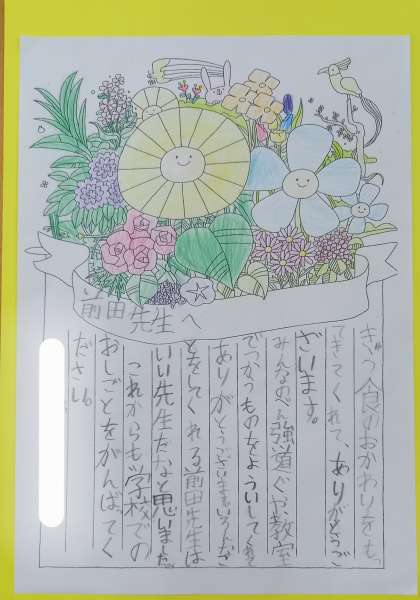 前田先生へ
ぎゅう食のおかわりをもっ
てきてくれて、ありがとうご
ざいます。
みんなのべん強道ぐや、教室
でつかうものをよういしてくれて
ありがとうございます。いろんなこ
とをしてくれる前田先生は
いい先生だなと思いました。
これからも学校での
おしごとをがんばってく
ださい。